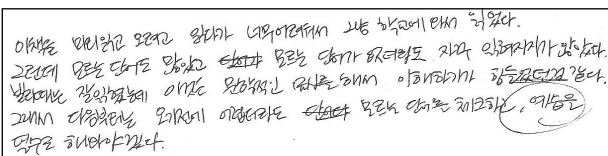 이책을 미리읽고 오려고 하다가 너무어려워서 그냥 학교에 와서 읽었다.
그런데 모르는 단어도 많았고 모르는 단어가 없더라도 자꾸 읽혀지지가 않았다.
발라데는 잘읽혔는데 이것은 문학적인 해서 이해하기가 힘들었던것 같다.
그래서 다음부터는 오기전에 어렵더라도 모르는 단어를 체크하고, 예습을
필수로 해와야겠다.